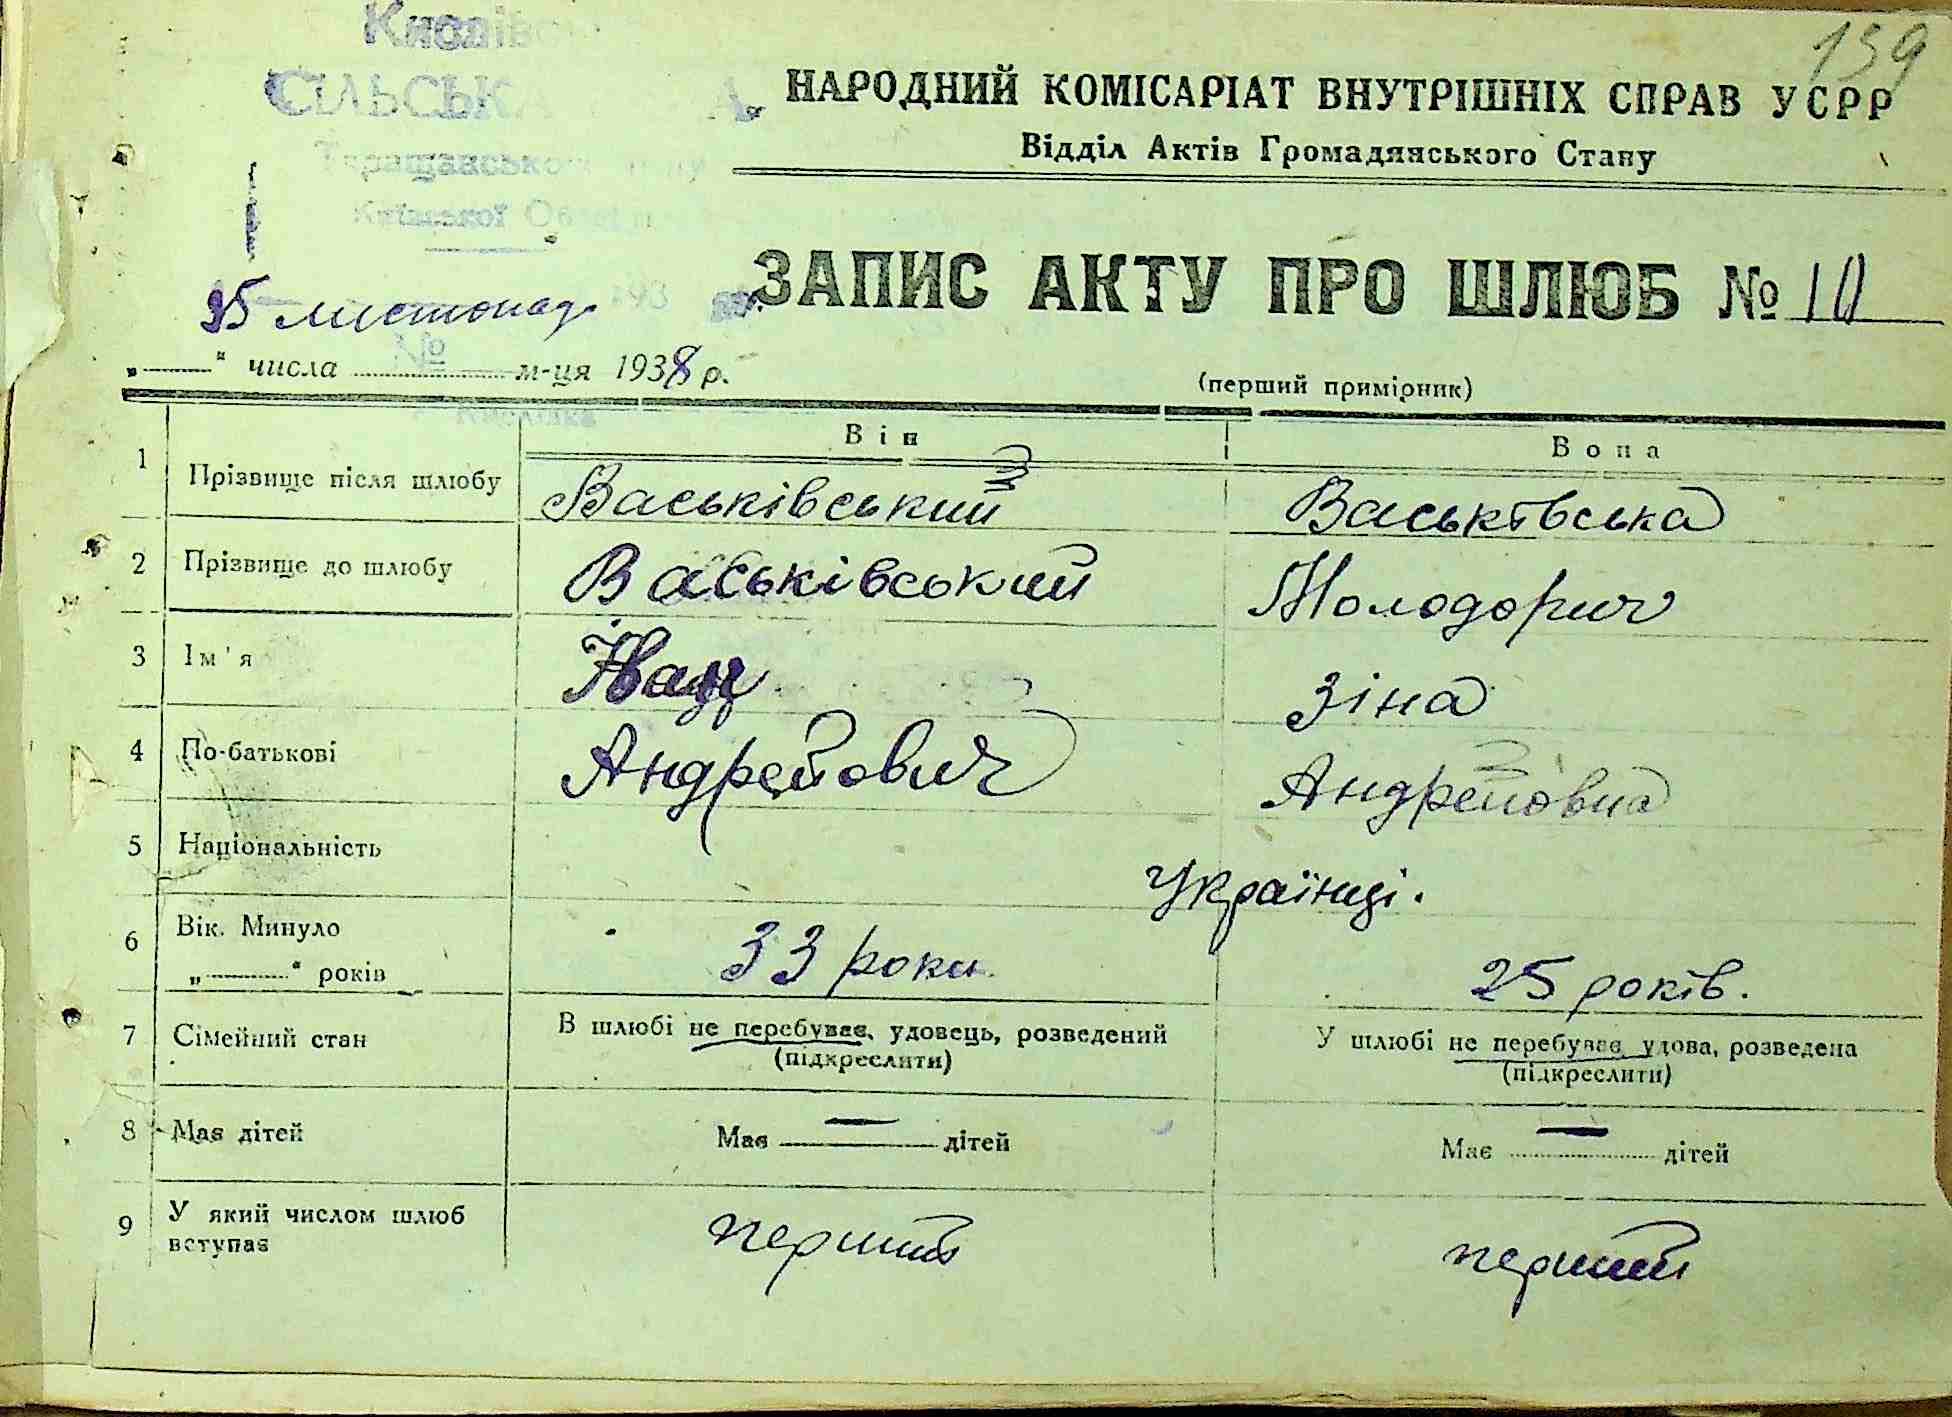 139
СІЛЬСЬКА
Таращанського
Київської
НАРОДНИЙ КОМІСАРІАТ ВНУТРІШНІХ СПРАВ УСРР
Відділ Актів Громадянського Стану
ЗАПИС АКТУ ПРО ШЛЮБ № 10
листопад
193
№
„ “ числа м-ця 1938 р.
(перший примірник)
Він Вона
1 Прізвище після шлюбу Васьківський Васьківська
2 Прізвище до шлюбу Васьківський Молодорич
3 Ім'я Іван Зіна
4 По-батькові Андрейович Андрейовна
5 Національність Українці.
6 Вік. Минуло
„ “ років 33 роки 25 років.
7 Сімейний стан В шлюбі не перебуває, удовець, розведений У шлюбі не перебуває удова, розведена
(підкреслити) (підкреслити)
8 Має дітей Має — дітей Має — дітей
9 У який числом шлюб
вступає перший перший